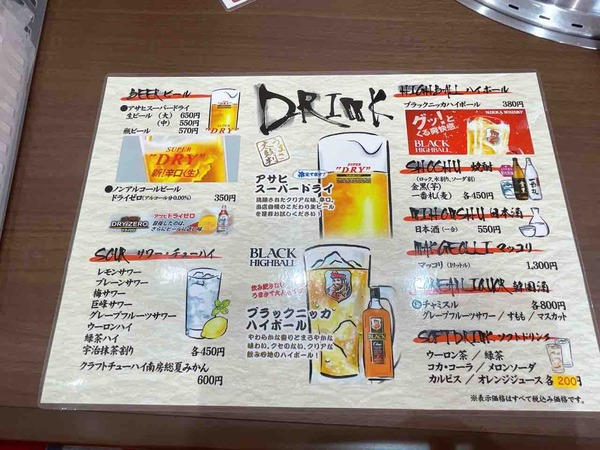 DRINK
BEER ビール
●アサヒスーパードライ
生ビール (大) 650円
(中) 550円
瓶ビール 570円
"DRY"
SUPER
"DRY"
新!辛口〈生〉
●ノンアルコールビール
ドライゼロ(アルコール分0.00%) 350円
DRYZERO
アサヒドライゼロ
SOUR サワー・チューハイ
レモンサワー
プレーンサワー
梅サワー
巨峰サワー
グレープフルーツサワー
ウーロンハイ
緑茶ハイ
宇治抹茶割り 各450円
クラフトチューハイ南房総夏みかん
600円
SUPER
"DRY"
アサヒ
スーパードライ
洗練されたクリアな味、辛口。
当店自慢のこだわり生ビール
を是非お試しください!
BLACK
HIGHBALL
ブラックニッカ
ハイボール
やわらかな香りとまろやかな
味わい。クセのない、クリアな
飲み心地のハイボール!
HIGHBALL ハイボール
ブラックニッカハイボール 380円
NIKKA WHISKY
グッ!と
くる爽快感。
BLACK
HIGHBALL
SHOCHU 焼酎
(ロック、水割り、ソーダ割)
金黒(芋)
一番札(麦) 各450円
NIHONSHU 日本酒
日本酒(一合) 550円
MAKGEOLLI マッコリ
マッコリ 1,300円
KOREAN LIQUOR 韓国酒
チャミスル 各800円
グレープフルーツサワー / すもも / マスカット
SOFT DRINK ソフトドリンク
ウーロン茶 / 緑茶
コカ・コーラ / メロンソーダ
カルピス / オレンジジュース 各200円
※表示価格はすべて税込み価格です。